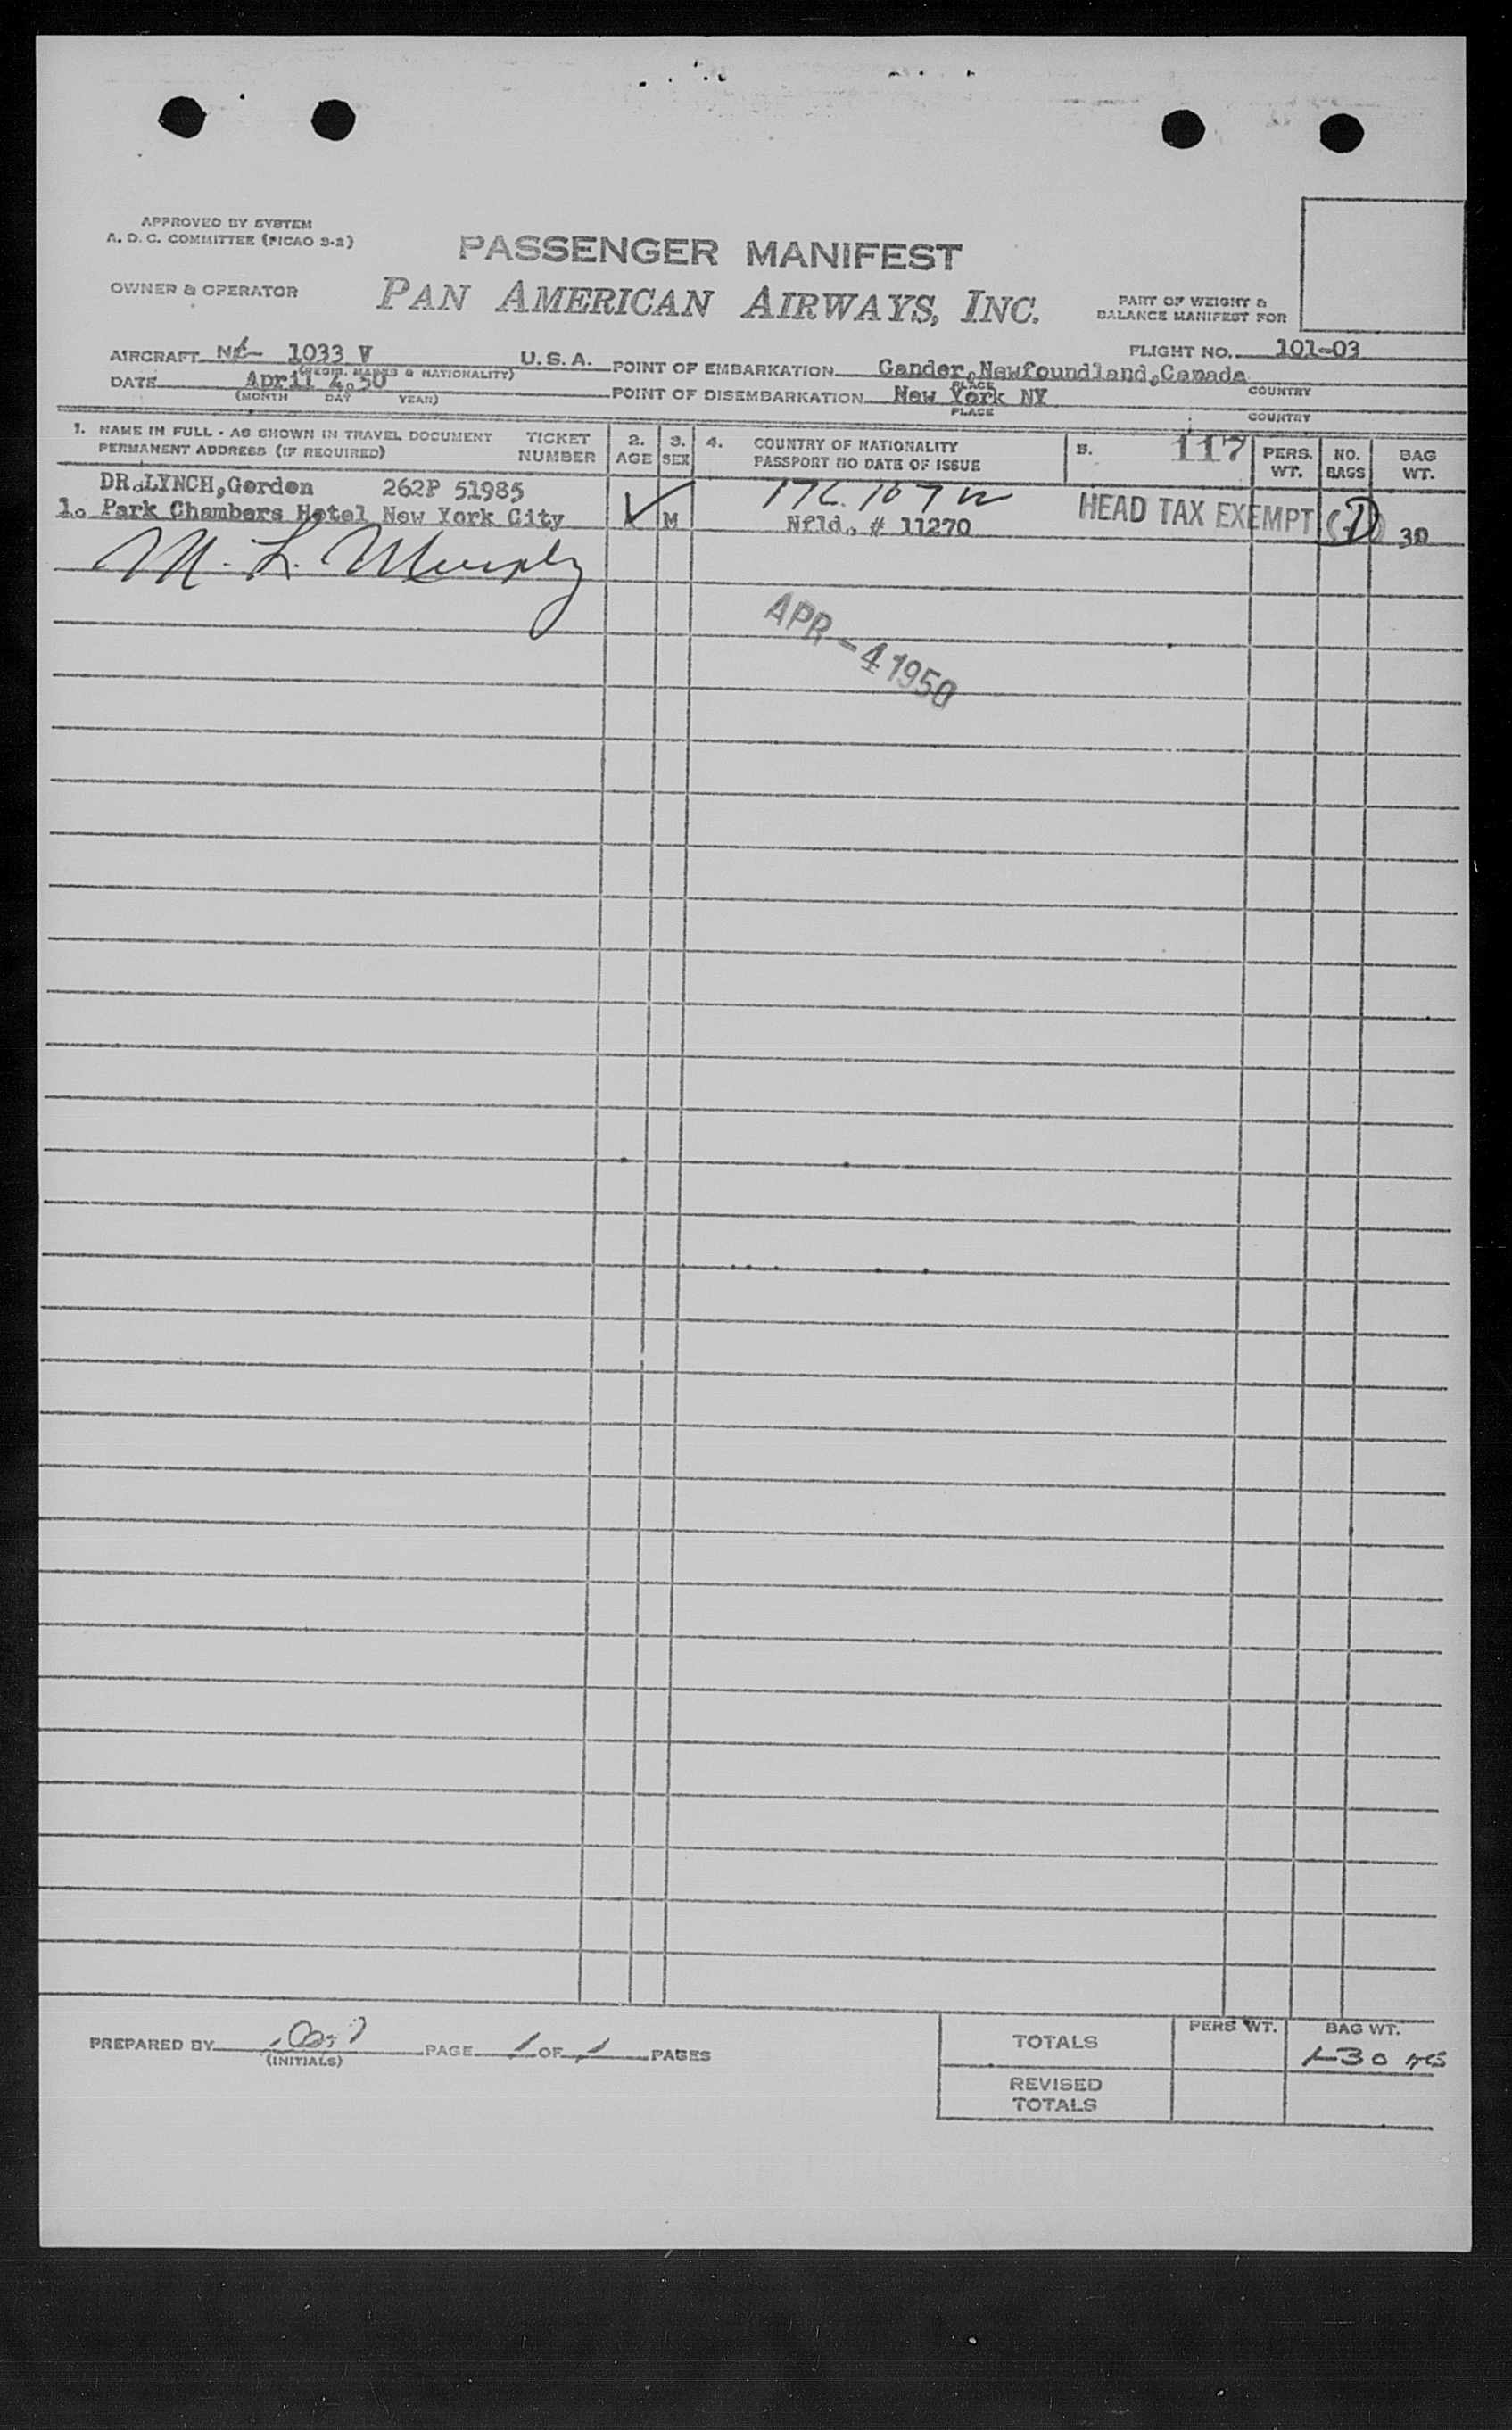 APPROVED BY SYSTEM
A. D. C. COMMITTEE (PICAO 3-2)
PASSENGER MANIFEST
OWNER & OPERATOR
PAN AMERICAN AIRWAYS, INC.
PART OF WEIGHT &
BALANCE MANIFEST FOR
AIRCRAFT 1033 V U. S. A.
(REGIS. MARKS & NATIONALITY)
FLIGHT NO. 101-03
POINT OF EMBARKATION Gander, Newfoundland, Canada
PLACE COUNTRY
DATE April 4. 50
(MONTH DAY YEAR)
POINT OF DISEMBARKATION New York NY
PLACE COUNTRY
1. NAME IN FULL - AS SHOWN IN TRAVEL DOCUMENT
PERMANENT ADDRESS (IF REQUIRED)
TICKET
NUMBER
2.
AGE
3.
SEX
4. COUNTRY OF NATIONALITY
PASSPORT NO DATE OF ISSUE
5. 117
PERS.
WT.
NO.
BAGS
BAG
WT.
DR. LYNCH, Gordon 262P 51985
1. Park Chambers Hotel New York City M Nfld. # 11270 HEAD TAX EXEMPT 30
M. L. Murphy
APR - 4 1950
PREPARED BY
(INITIALS)
PAGE 1 OF 1 PAGES
TOTALS
PERS WT.
BAG WT.
1-30
REVISED
TOTALS